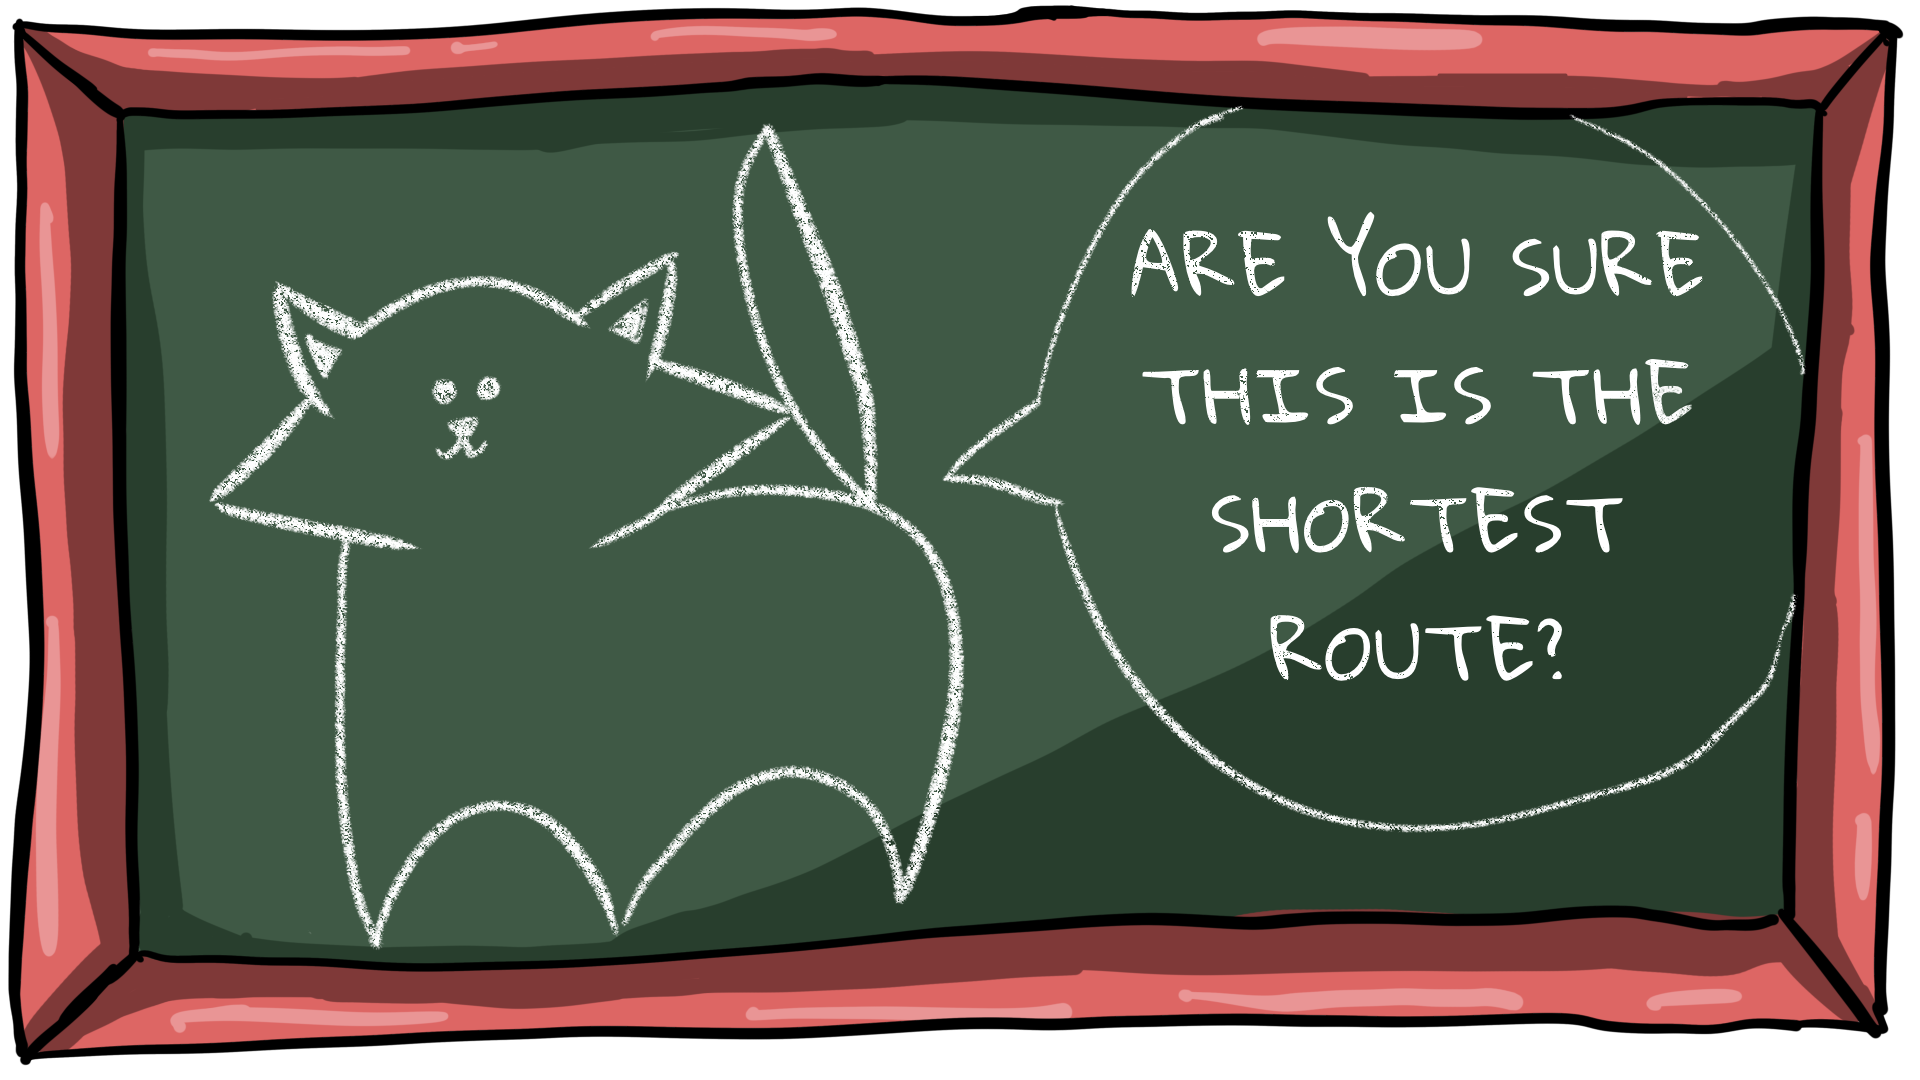 ARE YOU SURE
THIS IS THE
SHORTEST
ROUTE?